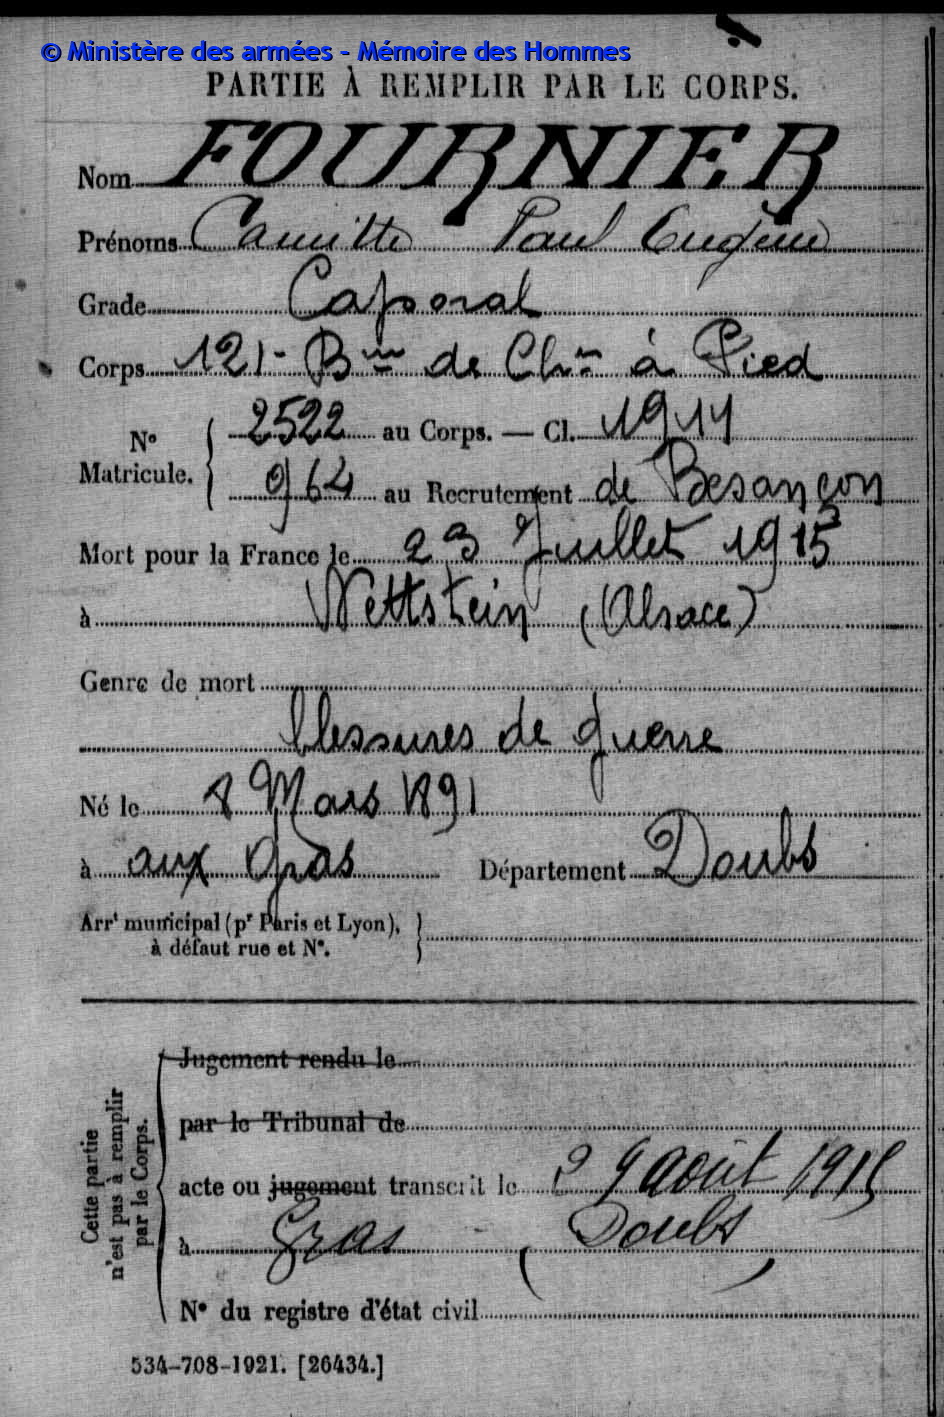 © Ministère des armées - Mémoire des Hommes
PARTIE À REMPLIR PAR LE CORPS.
Nom FOURNIER
Prénoms Camille Paul Eugène
Grade Caporal
Corps 121e Bon de Chrs à Pied
N° Matricule. { 2522 au Corps. — Cl. 1911
964 au Recrutement de Besançon
Mort pour la France le 23 Juillet 1915
à Wettstein (Alsace)
Genre de mort
blessures de guerre
Né le 8 Mars 1891
à aux Gras Département Doubs
Arrt municipal (pr Paris et Lyon), à défaut rue et N°. }
Cette partie n'est pas à remplir par le Corps.
Jugement rendu le
par le Tribunal de
acte ou jugement transcrit le 29 août 1915
à Gras (Doubs)
N° du registre d'état civil
534-708-1921. [26434.]